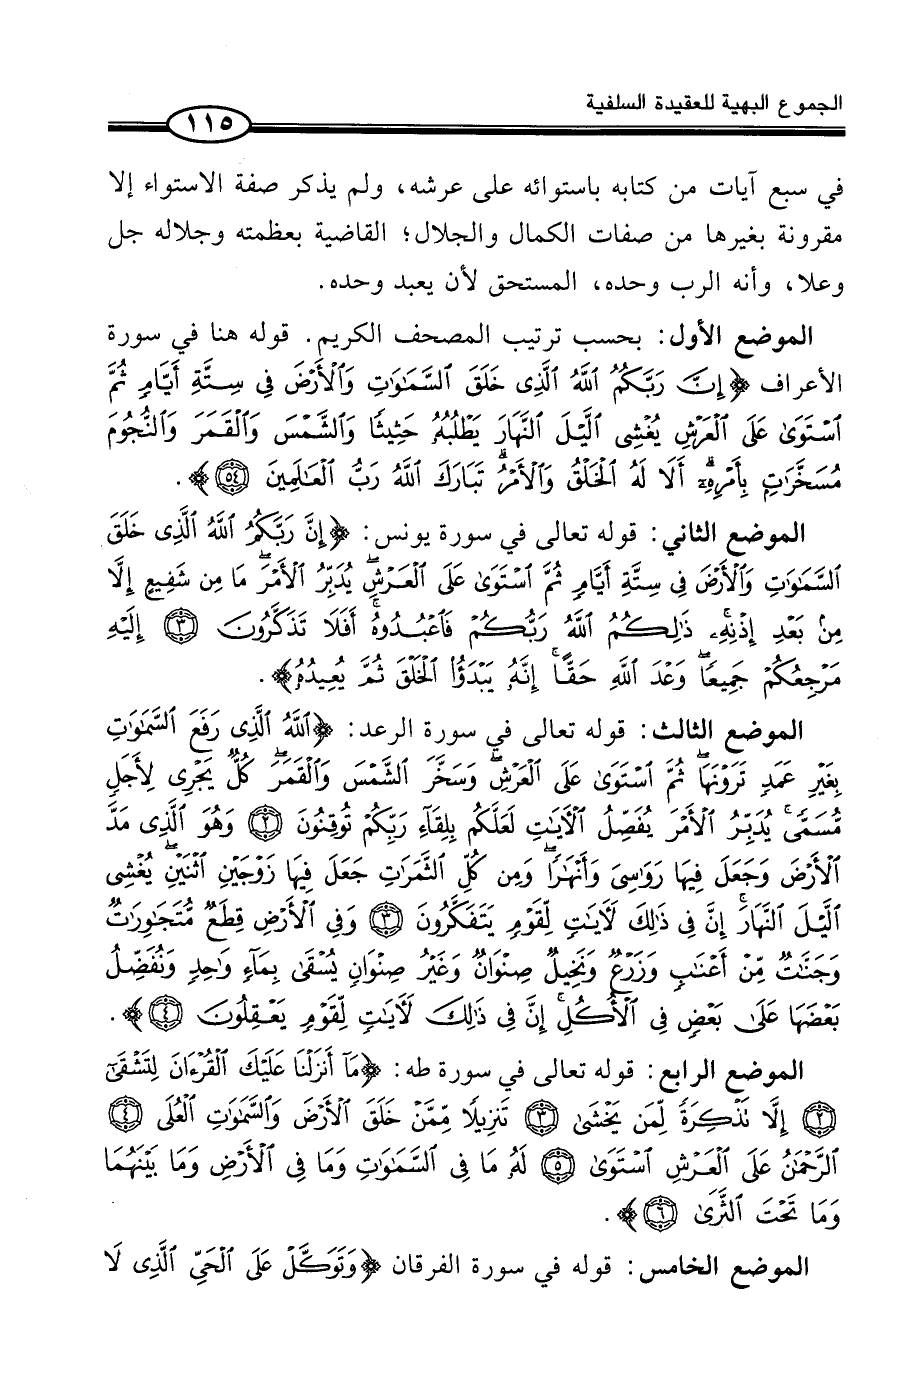 الجموع البهية للعقيدة السلفية
١١٥
في سبع آيات من كتابه باستوائه على عرشه، ولم يذكر صفة الاستواء إلا
مقرونة بغيرها من صفات الكمال والجلال؛ القاضية بعظمته وجلاله جل
وعلا، وأنه الرب وحده، المستحق لأن يعبد وحده.
الموضع الأول: بحسب ترتيب المصحف الكريم. قوله هنا في سورة
الأعراف ﴿إِنَّ رَبَّكُمُ ٱللَّهُ ٱلَّذِى خَلَقَ ٱلسَّمَٰوَٰتِ وَٱلْأَرْضَ فِى سِتَّةِ أَيَّامٍ ثُمَّ
ٱسْتَوَىٰ عَلَى ٱلْعَرْشِ يُغْشِى ٱلَّيْلَ ٱلنَّهَارَ يَطْلُبُهُۥ حَثِيثًا وَٱلشَّمْسَ وَٱلْقَمَرَ وَٱلنُّجُومَ
مُسَخَّرَٰتٍۭ بِأَمْرِهِۦٓ ۗ أَلَا لَهُ ٱلْخَلْقُ وَٱلْأَمْرُ ۗ تَبَارَكَ ٱللَّهُ رَبُّ ٱلْعَٰلَمِينَ ٥٤﴾.
الموضع الثاني: قوله تعالى في سورة يونس: ﴿إِنَّ رَبَّكُمُ ٱللَّهُ ٱلَّذِى خَلَقَ
ٱلسَّمَٰوَٰتِ وَٱلْأَرْضَ فِى سِتَّةِ أَيَّامٍ ثُمَّ ٱسْتَوَىٰ عَلَى ٱلْعَرْشِ ۖ يُدَبِّرُ ٱلْأَمْرَ ۖ مَا مِن شَفِيعٍ إِلَّا
مِنۢ بَعْدِ إِذْنِهِۦ ۚ ذَٰلِكُمُ ٱللَّهُ رَبُّكُمْ فَٱعْبُدُوهُ ۚ أَفَلَا تَذَكَّرُونَ ٣ إِلَيْهِ
مَرْجِعُكُمْ جَمِيعًا ۖ وَعْدَ ٱللَّهِ حَقًّا ۚ إِنَّهُۥ يَبْدَؤُا۟ ٱلْخَلْقَ ثُمَّ يُعِيدُهُۥ﴾.
الموضع الثالث: قوله تعالى في سورة الرعد: ﴿ٱللَّهُ ٱلَّذِى رَفَعَ ٱلسَّمَٰوَٰتِ
بِغَيْرِ عَمَدٍ تَرَوْنَهَا ۖ ثُمَّ ٱسْتَوَىٰ عَلَى ٱلْعَرْشِ ۖ وَسَخَّرَ ٱلشَّمْسَ وَٱلْقَمَرَ ۖ كُلٌّ يَجْرِى لِأَجَلٍ
مُّسَمًّى ۚ يُدَبِّرُ ٱلْأَمْرَ يُفَصِّلُ ٱلْءَايَٰتِ لَعَلَّكُم بِلِقَآءِ رَبِّكُمْ تُوقِنُونَ ٢ وَهُوَ ٱلَّذِى مَدَّ
ٱلْأَرْضَ وَجَعَلَ فِيهَا رَوَٰسِىَ وَأَنْهَٰرًا ۖ وَمِن كُلِّ ٱلثَّمَرَٰتِ جَعَلَ فِيهَا زَوْجَيْنِ ٱثْنَيْنِ ۖ يُغْشِى
ٱلَّيْلَ ٱلنَّهَارَ ۚ إِنَّ فِى ذَٰلِكَ لَءَايَٰتٍ لِّقَوْمٍ يَتَفَكَّرُونَ ٣ وَفِى ٱلْأَرْضِ قِطَعٌ مُّتَجَٰوِرَٰتٌ
وَجَنَّٰتٌ مِّنْ أَعْنَٰبٍ وَزَرْعٌ وَنَخِيلٌ صِنْوَانٌ وَغَيْرُ صِنْوَانٍ يُسْقَىٰ بِمَآءٍ وَٰحِدٍ وَنُفَضِّلُ
بَعْضَهَا عَلَىٰ بَعْضٍ فِى ٱلْأُكُلِ ۚ إِنَّ فِى ذَٰلِكَ لَءَايَٰتٍ لِّقَوْمٍ يَعْقِلُونَ ٤﴾.
الموضع الرابع: قوله تعالى في سورة طه: ﴿مَآ أَنزَلْنَا عَلَيْكَ ٱلْقُرْءَانَ لِتَشْقَىٰٓ
٢ إِلَّا تَذْكِرَةً لِّمَن يَخْشَىٰ ٣ تَنزِيلًا مِّمَّنْ خَلَقَ ٱلْأَرْضَ وَٱلسَّمَٰوَٰتِ ٱلْعُلَى ٤
ٱلرَّحْمَٰنُ عَلَى ٱلْعَرْشِ ٱسْتَوَىٰ ٥ لَهُۥ مَا فِى ٱلسَّمَٰوَٰتِ وَمَا فِى ٱلْأَرْضِ وَمَا بَيْنَهُمَا
وَمَا تَحْتَ ٱلثَّرَىٰ ٦﴾.
الموضع الخامس: قوله في سورة الفرقان ﴿وَتَوَكَّلْ عَلَى ٱلْحَىِّ ٱلَّذِى لَا